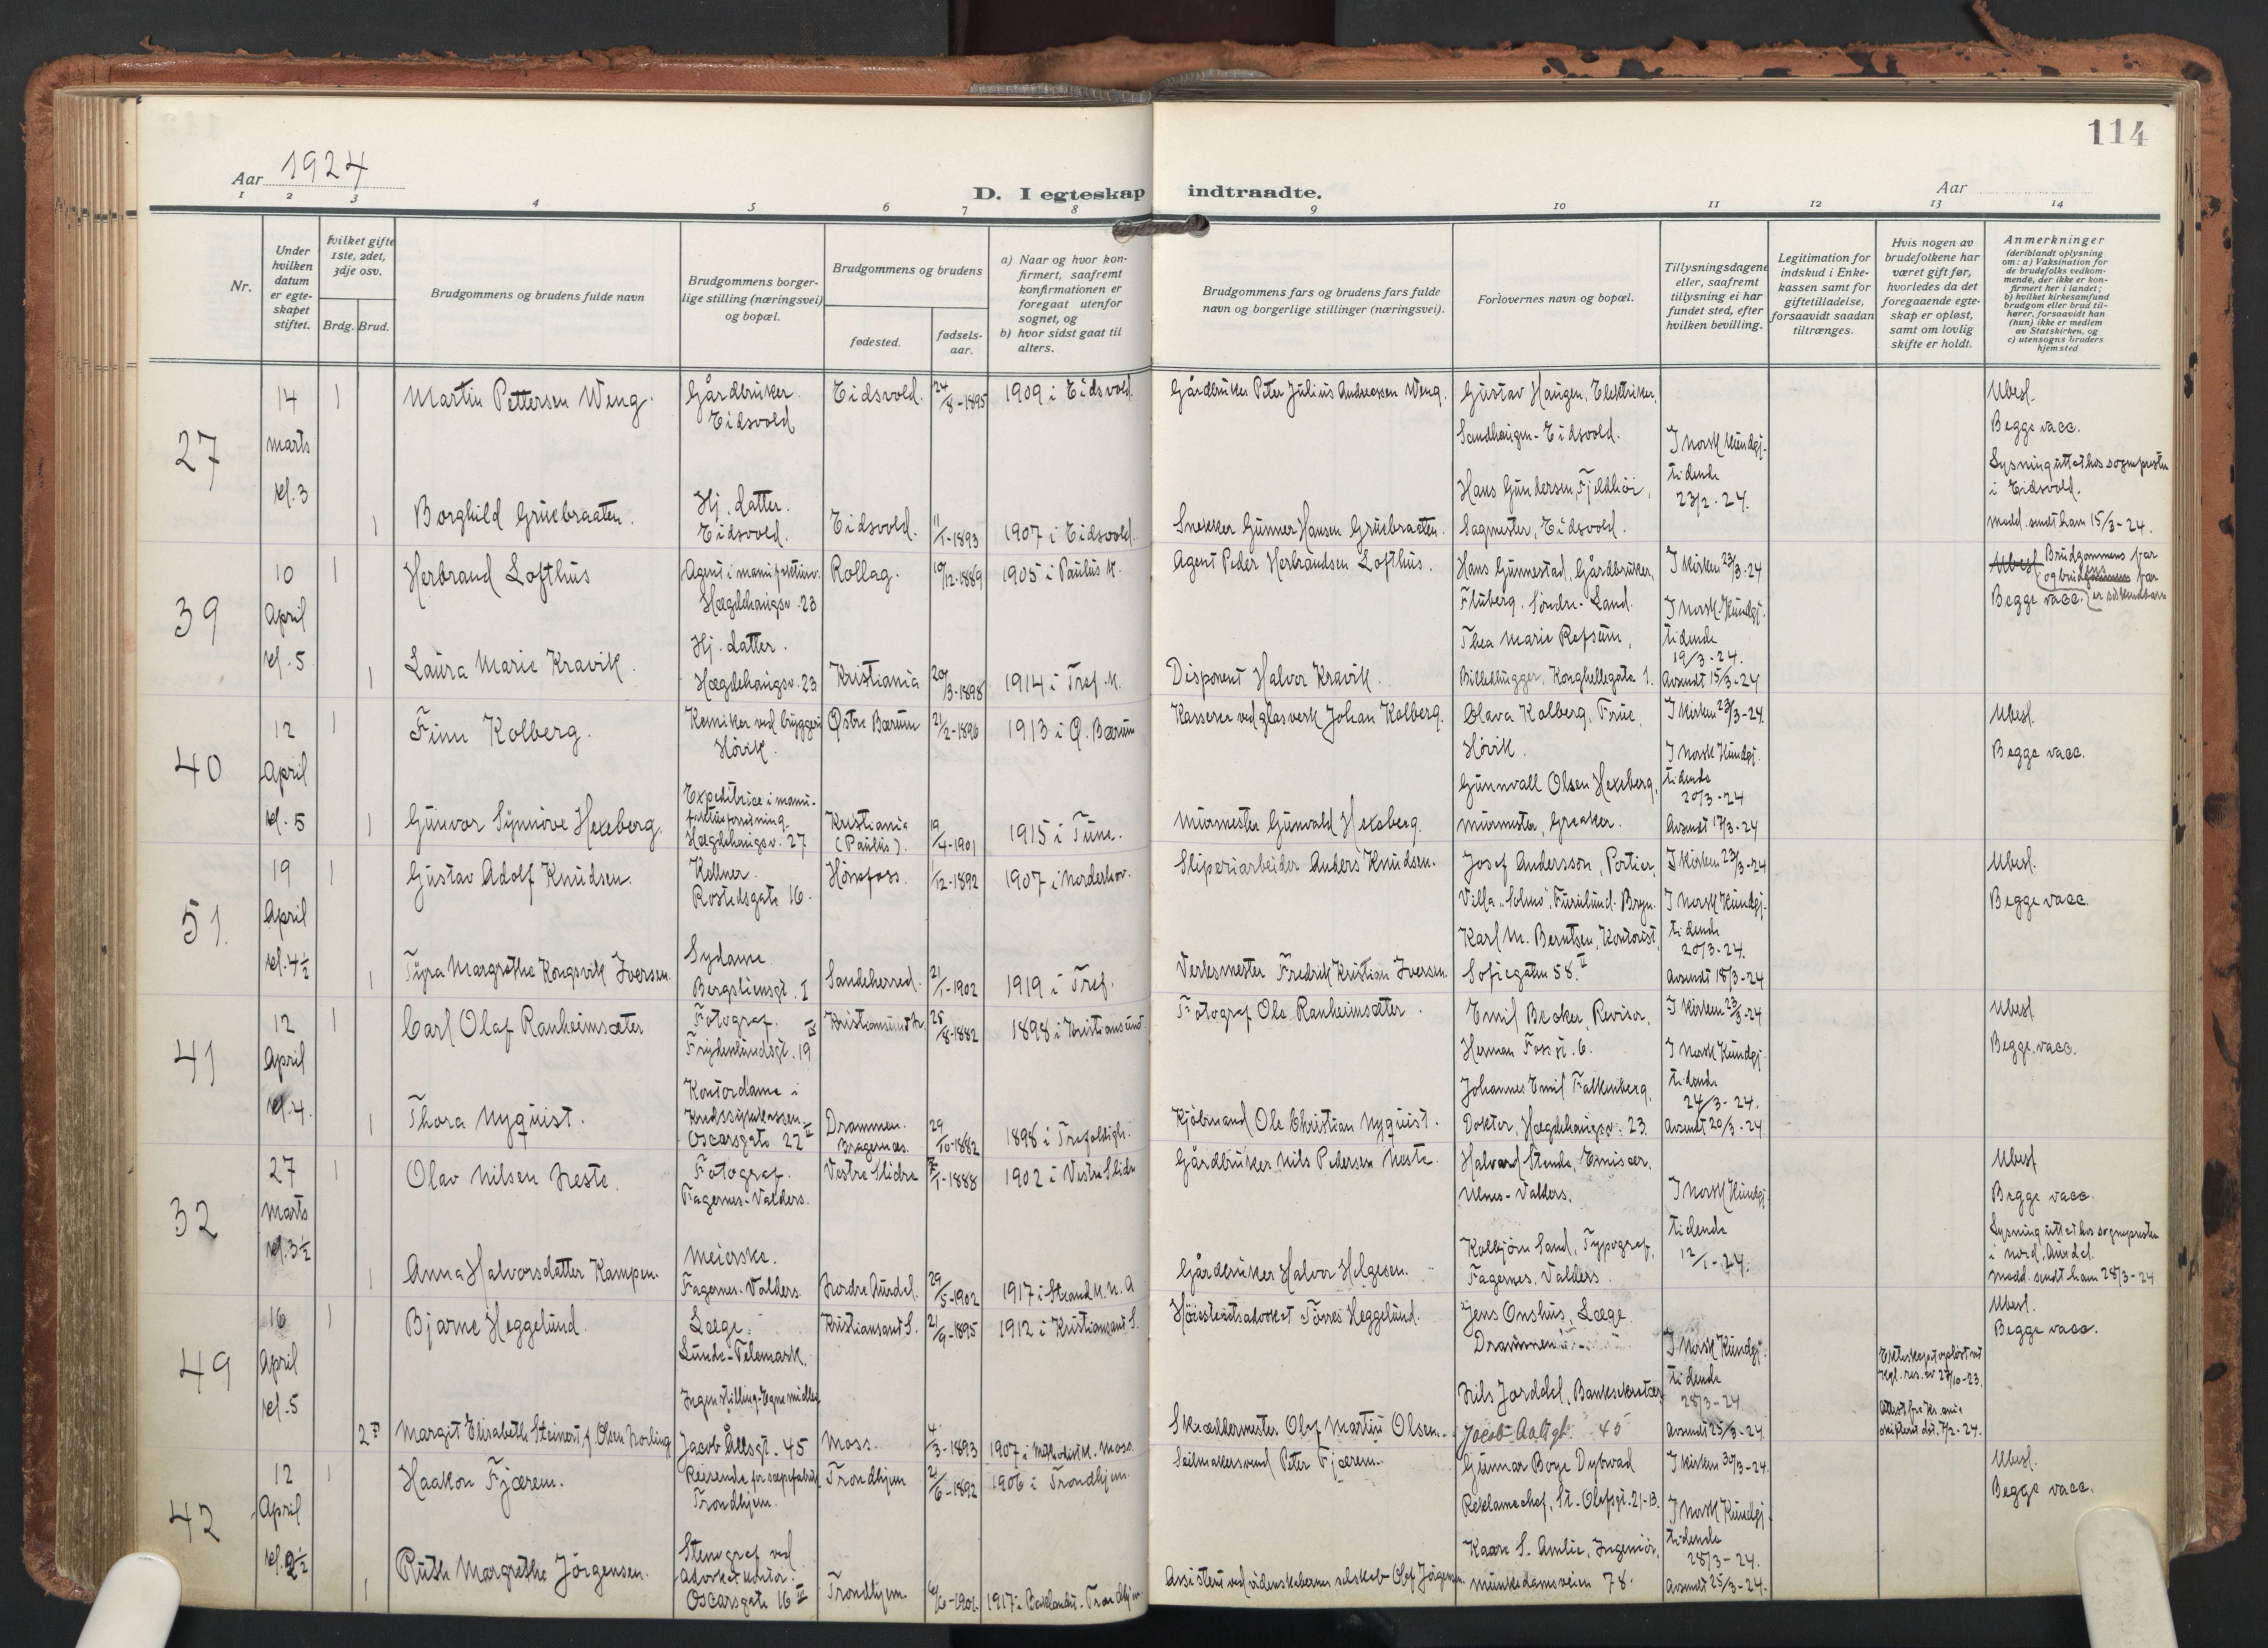 114
Aar 1924
D. I egteskap indtraadte.
Aar
1 2 3 4 5 6 7 8 9 10 11 12 13 14
Nr.
Under hvilken datum er egteskapet stiftet.
hvilket gifte 1ste, 2det, 3dje osv.
Brdg. Brud.
Brudgommens og brudens fulde navn
Brudgommens borgerlige stilling (næringsvei) og bopæl.
Brudgommens og brudens
fødested.
fødselsaar.
a) Naar og hvor konfirmert, saafremt konfirmationen er foregaat utenfor sognet, og
b) hvor sidst gaat til alters.
Brudgommens fars og brudens fars fulde navn og borgerlige stillinger (næringsvei).
Forlovernes navn og bopæl.
Tillysningsdagene eller, saafremt tillysning ei har fundet sted, efter hvilken bevilling.
Legitimation for indskud i Enkekassen samt for giftetilladelse, forsaavidt saadan tiltrænges.
Hvis nogen av brudefolkene har været gift før, hvorledes da det foregaaende egteskap er opløst, samt om lovlig skifte er holdt.
Anmerkninger (deriblandt oplysning om: a) Vaksination for de brudefolks vedkommende, der ikke er konfirmert her i landet; b) hvilket kirkesamfund brudgom eller brud tilhører, forsaavidt han (hun) ikke er medlem av Statskirken, og c) utensogns bruders hjemsted
27
14 marts kl. 3
1 Martin Pettersen Weng. Gårdbruker. Eidsvold Eidsvold. 24/8-1895 1909 i Eidsvold. Gårdbruker Peter Julius Andreassen Weng. Gustav Haugen, Elektriker, Sandhaugen - Eidsvold.
I norsk Kundgj. tidende 23/2-24.
Ubesl. Begge vacc.
Lysning uttat hos sognepresten i Eidsvold. medd. sendt ham 15/3-24.
1 Borghild Gruebraaten. Hj. datter. Eidsvold. Eidsvold. 11/1-1893 1907 i Eidsvold. Snekker Gunner Hansen Gruebraaten. Hans Gundersen, Fjeldhöi, Sagmester, Eidsvold.
39
10 April kl. 5
1 Herbrand Lofthus Agent i manufaktur. Hægdehaugsv. 23 Rollag. 10/12-1889 1905 i Paulus K. Agent Peder Herbrandsen Lofthus. Hans Gunnestad, Gårdbruker, Fluberg. Söndre-Land.
I kirken 23/3-24 I norsk Kundgj. tidende 19/3-24. Avsendt 15/3-24
Ubesl. Brudgommens far og brudens far er söskendebarn
Begge vacc.
1 Laura Marie Kravik. Hj. datter. Hægdehaugsv. 23 Kristiania 20/3-1898 1914 i Tref. K. Disponent Halvor Kravik. Thea Marie Refsum, Billedhugger, Konghellegata 1.
40
12 April kl. 5
1 Finn Kolberg. Kemiker ved bryggeri Hövik. Östre Bærum 21/2-1896 1913 i Ö. Bærum Kasserer ved glasverk Johan Kolberg. Olava Kolberg, Frue, Hövik.
I kirken 23/3-24. I norsk Kundgj. tidende 20/3-24 Avsendt 17/3-24
Ubesl. Begge vacc.
1 Gunvor Synnöve Hexeberg. Expeditrice i manufakturforretning. Hægdehaugsv. 27 Kristiania (Paulus). 19/4-1901 1915 i Tune. Murmester Gunvald Hexeberg. Gunnvall Olsen Hexeberg, murmester, Greaker.
51.
19 April kl. 4½
1 Gustav Adolf Knudsen. Kellner. Rostedsgate 16. Hönefoss. 1/12-1892 1907 i Norderhov. Sliperiarbeider Anders Knudsen. Josef Andersson, Portier, Villa „Solmo", Furulund. Bryn.
I kirken 23/3-24 I norsk Kundgj. tidende 20/3-24. Avsendt 18/3-24
Ubesl. Begge vacc.
1 Tyra Margrethe Kongsvik Iversen. Sydame. Bergsliensgt. I Sandeherred. 21/1-1902 1919 i Tref. Verksmester Fredrik Kristian Iversen. Karl M. Berntsen, Kontorist, Sofiegaten 58. II
41
12 April kl. 4.
1 Carl Olaf Ranheimsæter Fotograf. Frydenlundsgt. 19 Kristiansund N. 25/8-1882 1898 i Kristiansund. Fotograf Ole Ranheimsæter. Emil Becker, Revisor, Herman Fossgt. 6.
I kirken 23/3-24 I norsk Kundgj. tidende 24/3-24. Avsendt 20/3-24
Ubesl Begge vacc.
1 Thora Nyquist. Kontordame i Kredssykekassen. Oscarsgate 22 II Drammen. Bragernæs. 29/10-1882 1898 i Trefoldigh. Kjöbmand Ole Christian Nyquist. Johannes Emil Falkenberg, Doktor, Hægdehaugsv. 23.
32
27 marts kl. 3½
1 Olav Nilsen Neste. Fotograf. Fagernes-Valders. Vestre Slidre 1/1-1888 1902 i Vestre Slidre Gårdbruker Nils Pedersen Neste. Halvard Stende, Emissær, Ulnes-Valders.
I norsk Kundgj. tidende 12/1-24.
Ubesl Begge vacc.
Lysning uttat hos sognepresten i nord. Aurdal. medd. sendt ham 28/3-24
1 Anna Halvorsdatter Kampen. Meierske. Fagernes-Valders Nordre Aurdal. 29/5-1902 1917 i Strand K. N. A Gårdbruker Halvor Helgesen. Kolbjörn Sand, Typograf, Fagernes. Valders.
49
16 April kl. 5
1 Bjarne Heggelund. Læge. Lunde-Telemark. Kristiansand S. 21/9-1895 1912 i Kristiansand S. Höiesteretsadvokat Torres Heggelund. Jens Onshus, Læge Drammen
I norsk Kundgj. tidende 28/3-24. Avsendt 25/3-24.
Ekteskapet oplöst ved Kgl. res. av 27/10-23.
Ubesl. Begge vacc.
2 Margit Elisabeth Steinert, f. Olsen Norling Ingen stilling. Egne midler Jacob Allsgt. 45 Moss. 4/3-1893 1907 i Metodistk. Moss. Skræddermester Olaf Martin Olsen. Nils Jorddal, Banksekretær, Jacob Aalsgt. 45
42
12 April kl. 2½
1 Haakon Fjærem. Reisende for sæpefabrik Trondhjem. Trondhjem 21/6-1892 1906 i Trondhjem. Seilmakersvend Peter Fjærem. Gunnar Borge Dybwad Reklamechef, St. Olafsgt. 21-B.
I kirken 30/3-24. I norsk Kundgj. tidende 28/3-24. Avsendt 25/3-24.
Ubesl. Begge vacc.
1 Ruth Margrethe Jörgensen. Stenograf ved Advokatkontor. Oscarsgate 16 III Trondhjem. 1917 i Baklandet. Trondhjem Assistent ved videnskabernes selskab Olaf Jörgensen. Kaare S. Amlie, Ingeniör, munkedamsveien 78.